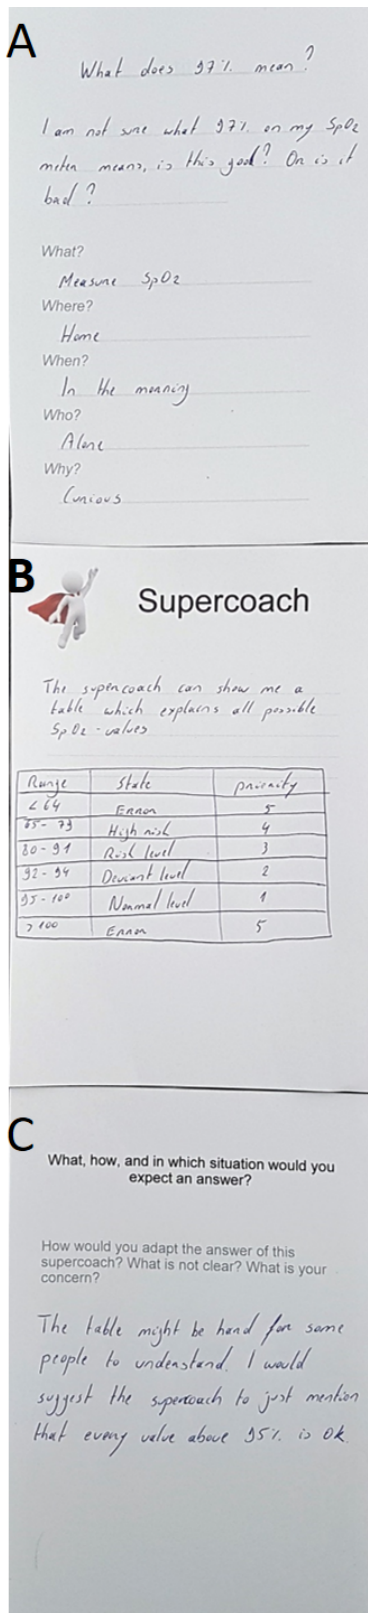 A
What does 97% mean?
I am not sure what 97% on my SpO2
meter means, is this good? Or is it
bad?
What?
Measure SpO2
Where?
Home
When?
In the morning
Who?
Alone
Why?
Curious
B
Supercoach
The supercoach can show me a
table which explains all possible
SpO2-values
Range State priority
< 64 Error 5
65-79 High risk 4
80-91 Risk level 3
92-94 Deviant level 2
95-100 Normal level 1
>100 Error 5
C
What, how, and in which situation would you
expect an answer?
How would you adapt the answer of this
supercoach? What is not clear? What is your
concern?
The table might be hard for some
people to understand. I would
suggest the supercoach to just mention
that every value above 95% is ok.